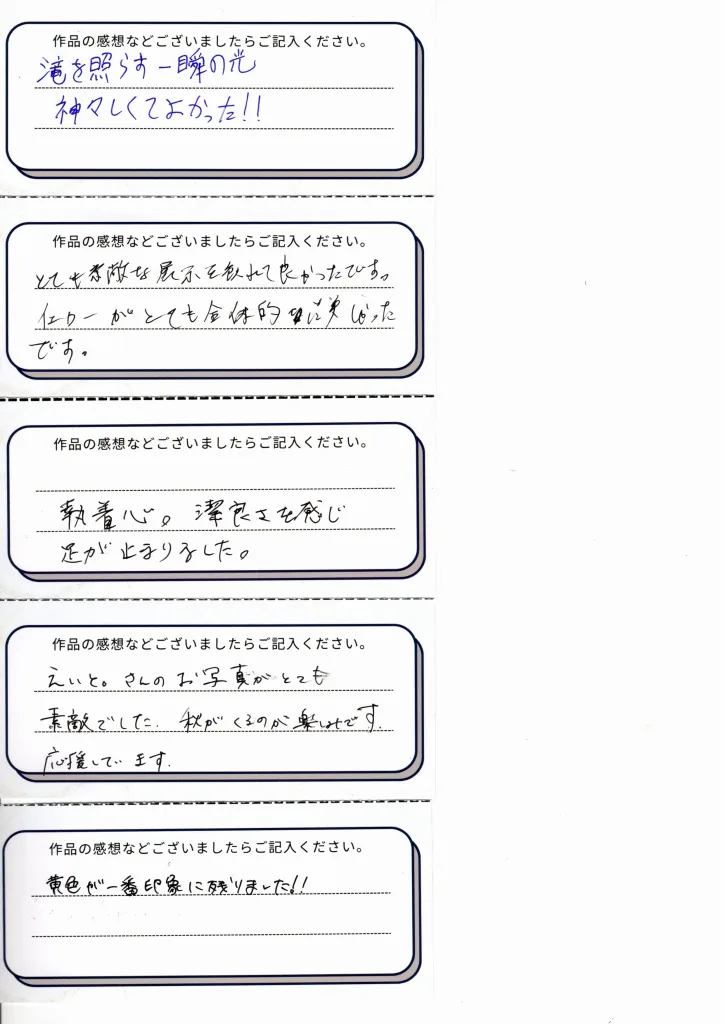 作品の感想などございましたらご記入ください。
滝を照らす一瞬の光
神々しくてよかった!!
作品の感想などございましたらご記入ください。
とても素敵な展示を 良かったです。
イエローがとても全体的に美しかった
です。
作品の感想などございましたらご記入ください。
執着心。潔良さを感じ
足が止まりました。
作品の感想などございましたらご記入ください。
えいと。さんのお写真がとても
素敵でした。秋がくるのが楽しみです。
応援しています.
作品の感想などございましたらご記入ください。
黄色が一番印象に残りました!!